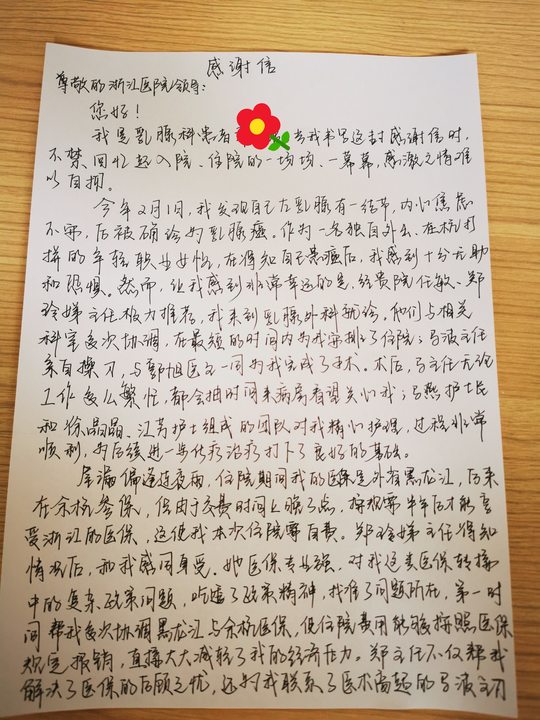 感谢信
尊敬的浙江医院领导:
您好!
我是乳腺科患者 当我书写这封感谢信时,
不禁回忆起入院、住院的一场场、一幕幕,感激之情难
以自抑。
今年2月1日,我发现自己左乳腺有一结节,内心焦虑
不安,后被确诊为乳腺癌。作为一名独自外出、在杭打
拼的年轻职业女性,在得知自己患癌后,我感到十分无助
和恐惧。然而,让我感到非常幸运的是,经贵院任敏、郑
玲娣主任极力推荐,我来到乳腺外科就诊。他们与相关
科室多次协调,在最短的时间内为我安排了住院;马波主任
亲自操刀,与郭旭医生一同为我完成了手术。术后,马主任无论
工作多么繁忙,都会抽时间来病房看望关心我;马燕护士长
和徐晶晶、江芳护士组成的团队对我精心护理,过程非常
顺利,为后续进一步化疗治疗打下了良好的基础。
屋漏偏逢连夜雨,住院期间我的医保是外省黑龙江,后来
在余杭参保,但由于交费时间上晚了点,按规需半年后才能享
受浙江的医保,这使我本次住院需自费。郑玲娣主任得知
情况后,和我感同身受。她医保专业强,对我这类医保转接
中的复杂政策问题,吃透了政策精神,找准了问题所在,第一时
间帮我多次协调黑龙江与余杭医保,使住院费用能够按照医保
规定报销,直接大大减轻了我的经济压力。郑主任不仅帮我
解决了医保的后顾之忧,还为我联系了医术高超的马波主刀